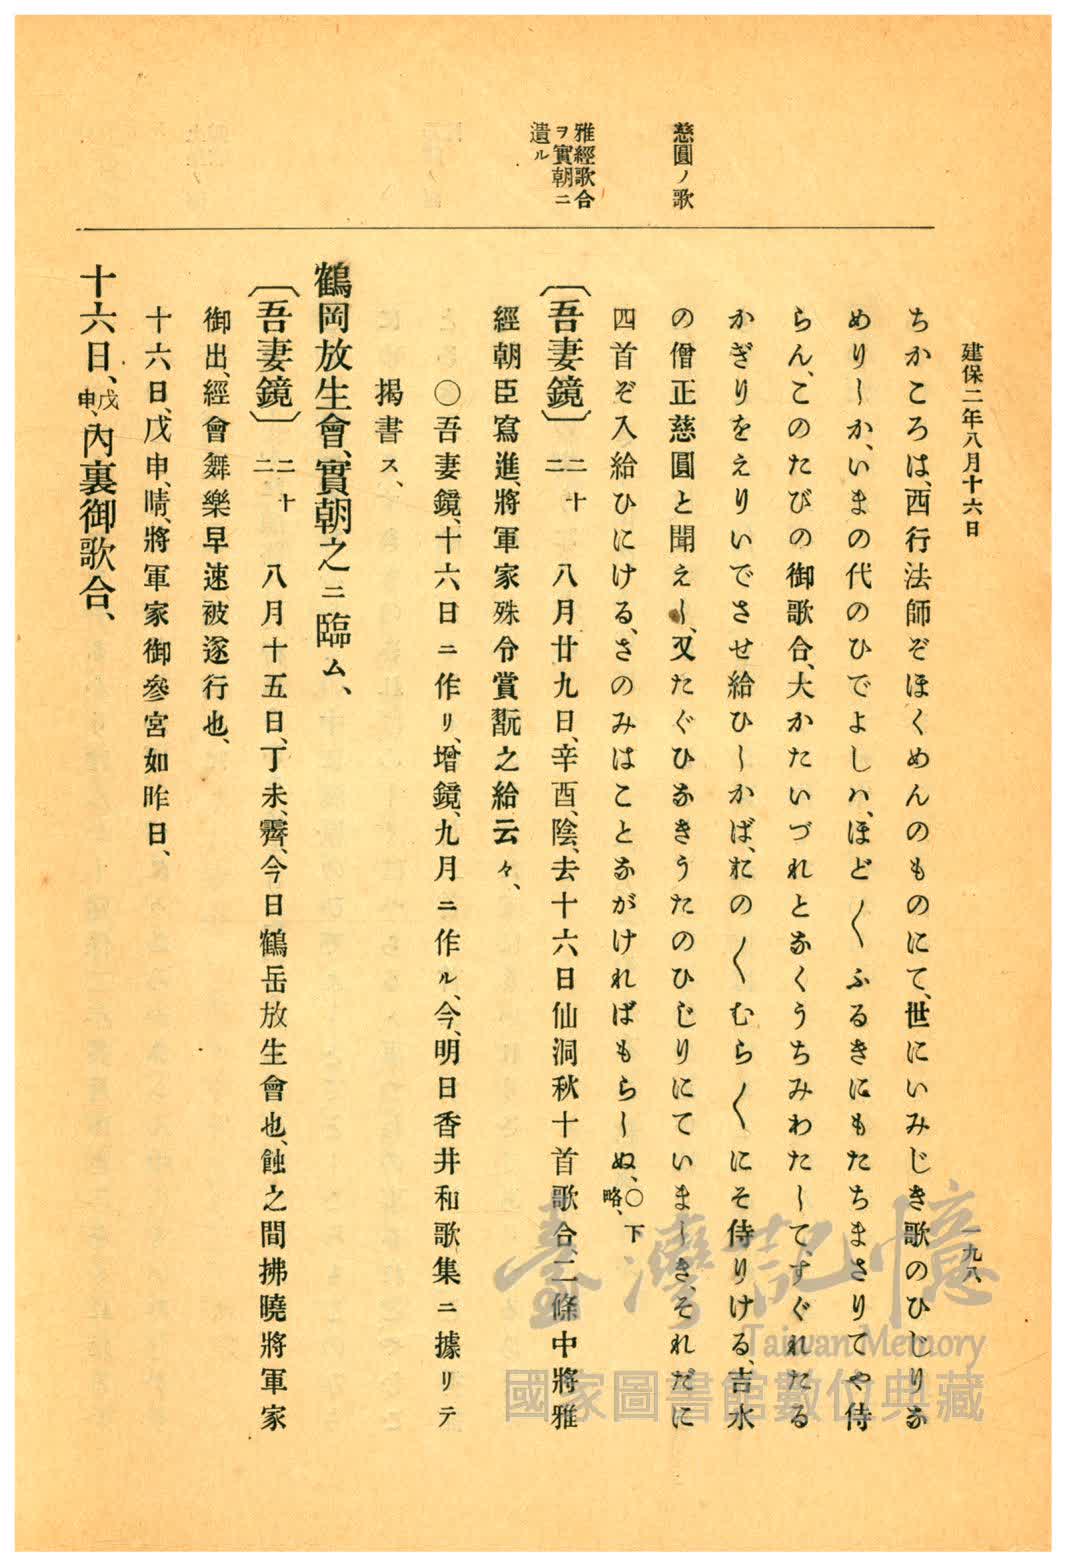 建保二年八月十六日
一九八
慈圓ノ歌
雅經歌合
ヲ實朝ニ
遺ル
ちかころは、西行法師ぞほくめんのものにて、世にいみじき歌のひじりな
めりしか、いまの代のひでよしハ、ほど〱ふるきにもたちまさりてや侍
らん、このたびの御歌合、大かたいづれとなくうちみわたして、すぐれたる
かぎりをえりいでさせ給ひしかば、おの〱むら〱にそ侍りける、吉水
の僧正慈圓と聞えし、又たぐひなきうたのひじりにていましき、それだに
四首ぞ入給ひにける、さのみはことながければもらしぬ、〇下略、
〔吾妻鏡〕二十二 八月廿九日、辛酉、陰、去十六日仙洞秋十首歌合、二條中將雅
經朝臣寫進、將軍家殊令賞翫之給云々、
〇吾妻鏡、十六日ニ作リ、增鏡、九月ニ作ル、今、明日香井和歌集ニ據リテ
揭書ス、
鶴岡放生會、實朝之ニ臨ム、
〔吾妻鏡〕二十二 八月十五日、丁未、霽、今日鶴岳放生會也、蝕之間拂曉將軍家
御出、經會舞樂早速被遂行也、
十六日、戊申、晴、將軍家御參宮如昨日、
十六日、戊申、內裏御歌合、
臺灣記憶
Taiwan Memory
國家圖書館數位典藏